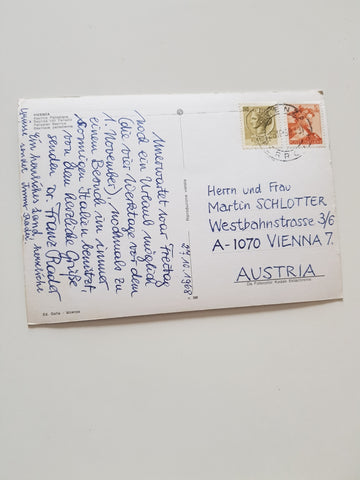 VICENZA
Basilica Palladiana
Unerwartet war Freitag
noch ein Urlaub möglich
(die vier Werktage vor dem
1. November), nochmals zu
einem Besuch im immer
sonnigen Italien benützt
von dem herzliche Grüße
senden Dr. Franz
Ein herrliches Land, herrliche
27.10.1968
Herrn und Frau
Martin SCHLOTTER
Westbahnstrasse 3/6
A-1070 VIENNA 7.
AUSTRIA
Ed. Galla - Vicenza